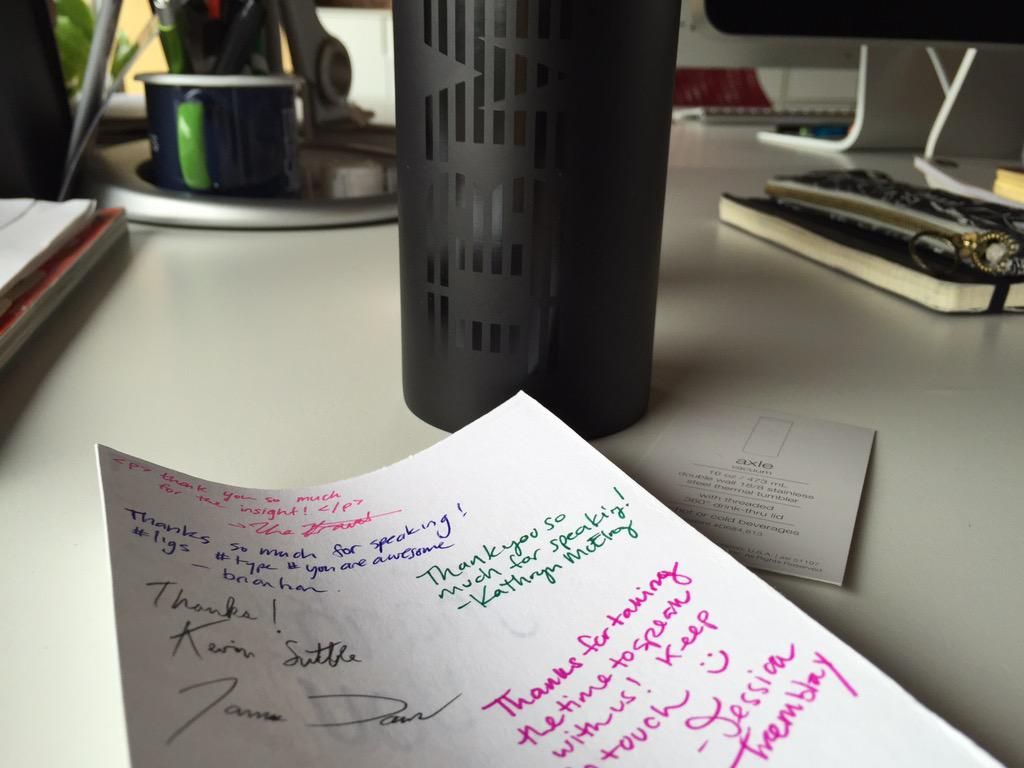 <p> thank you so much
for the insight! </p>
Thanks so much for speaking!
#ligs #type #youareawesome
- brianhan
Thanks!
Kevin Suttle
Thank you so
much for speaking!
- Kathryn
Thanks for taking
the time to speak
with us! Keep
in touch :)
- Jessica
Tremblay
axle
vacuum
16 oz / 473 mL
double wall 18/8 stainless
steel thermal tumbler
with threaded
360° drink-thru lid
hot or cold beverages